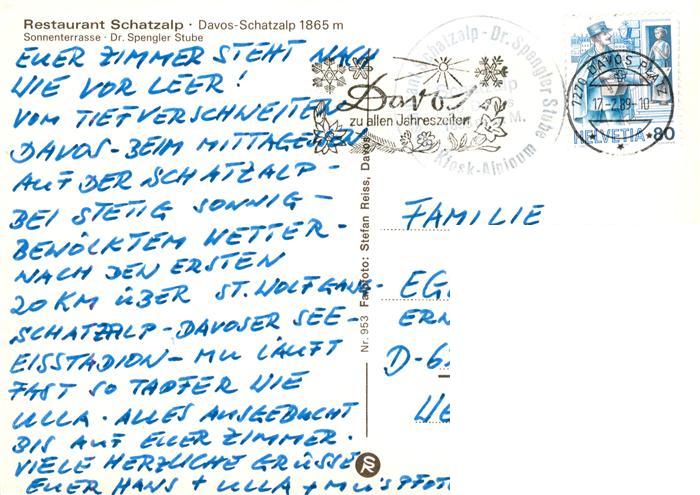 Restaurant Schatzalp · Davos-Schatzalp 1865 m
Sonnenterrasse · Dr. Spengler Stube
EUER ZIMMER STEHT NACH
WIE VOR LEER!
VOM TIEFVERSCHNEITEN
DAVOS - BEIM MITTAGESSEN
AUF DER SCHATZALP -
BEI STETIG SONNIG -
BEWÖLKTEM WETTER -
NACH DEN ERSTEN
20 KM ÜBER ST. WOLFGANG-
SCHATZALP - DAVOSER SEE -
EISSTADION - MU LÄUFT
FAST SO TAPFER WIE
ULLA. ALLES AUSGEBUCHT
BIS AUF EUER ZIMMER.
VIELE HERZLICHE GRÜSSE
EUER HANS + ULLA + MU'S PFOT
Schatzalp - Dr. Spengler Stube
Kiosk-Alpinum
Davos
zu allen Jahreszeiten
7270 DAVOS PLATZ
17.-2.89-10
HELVETIA 80
Nr. 953 Farbfoto: Stefan Reiss, Davos
FAMILIE
EG
ERN
D-6
WE
SR